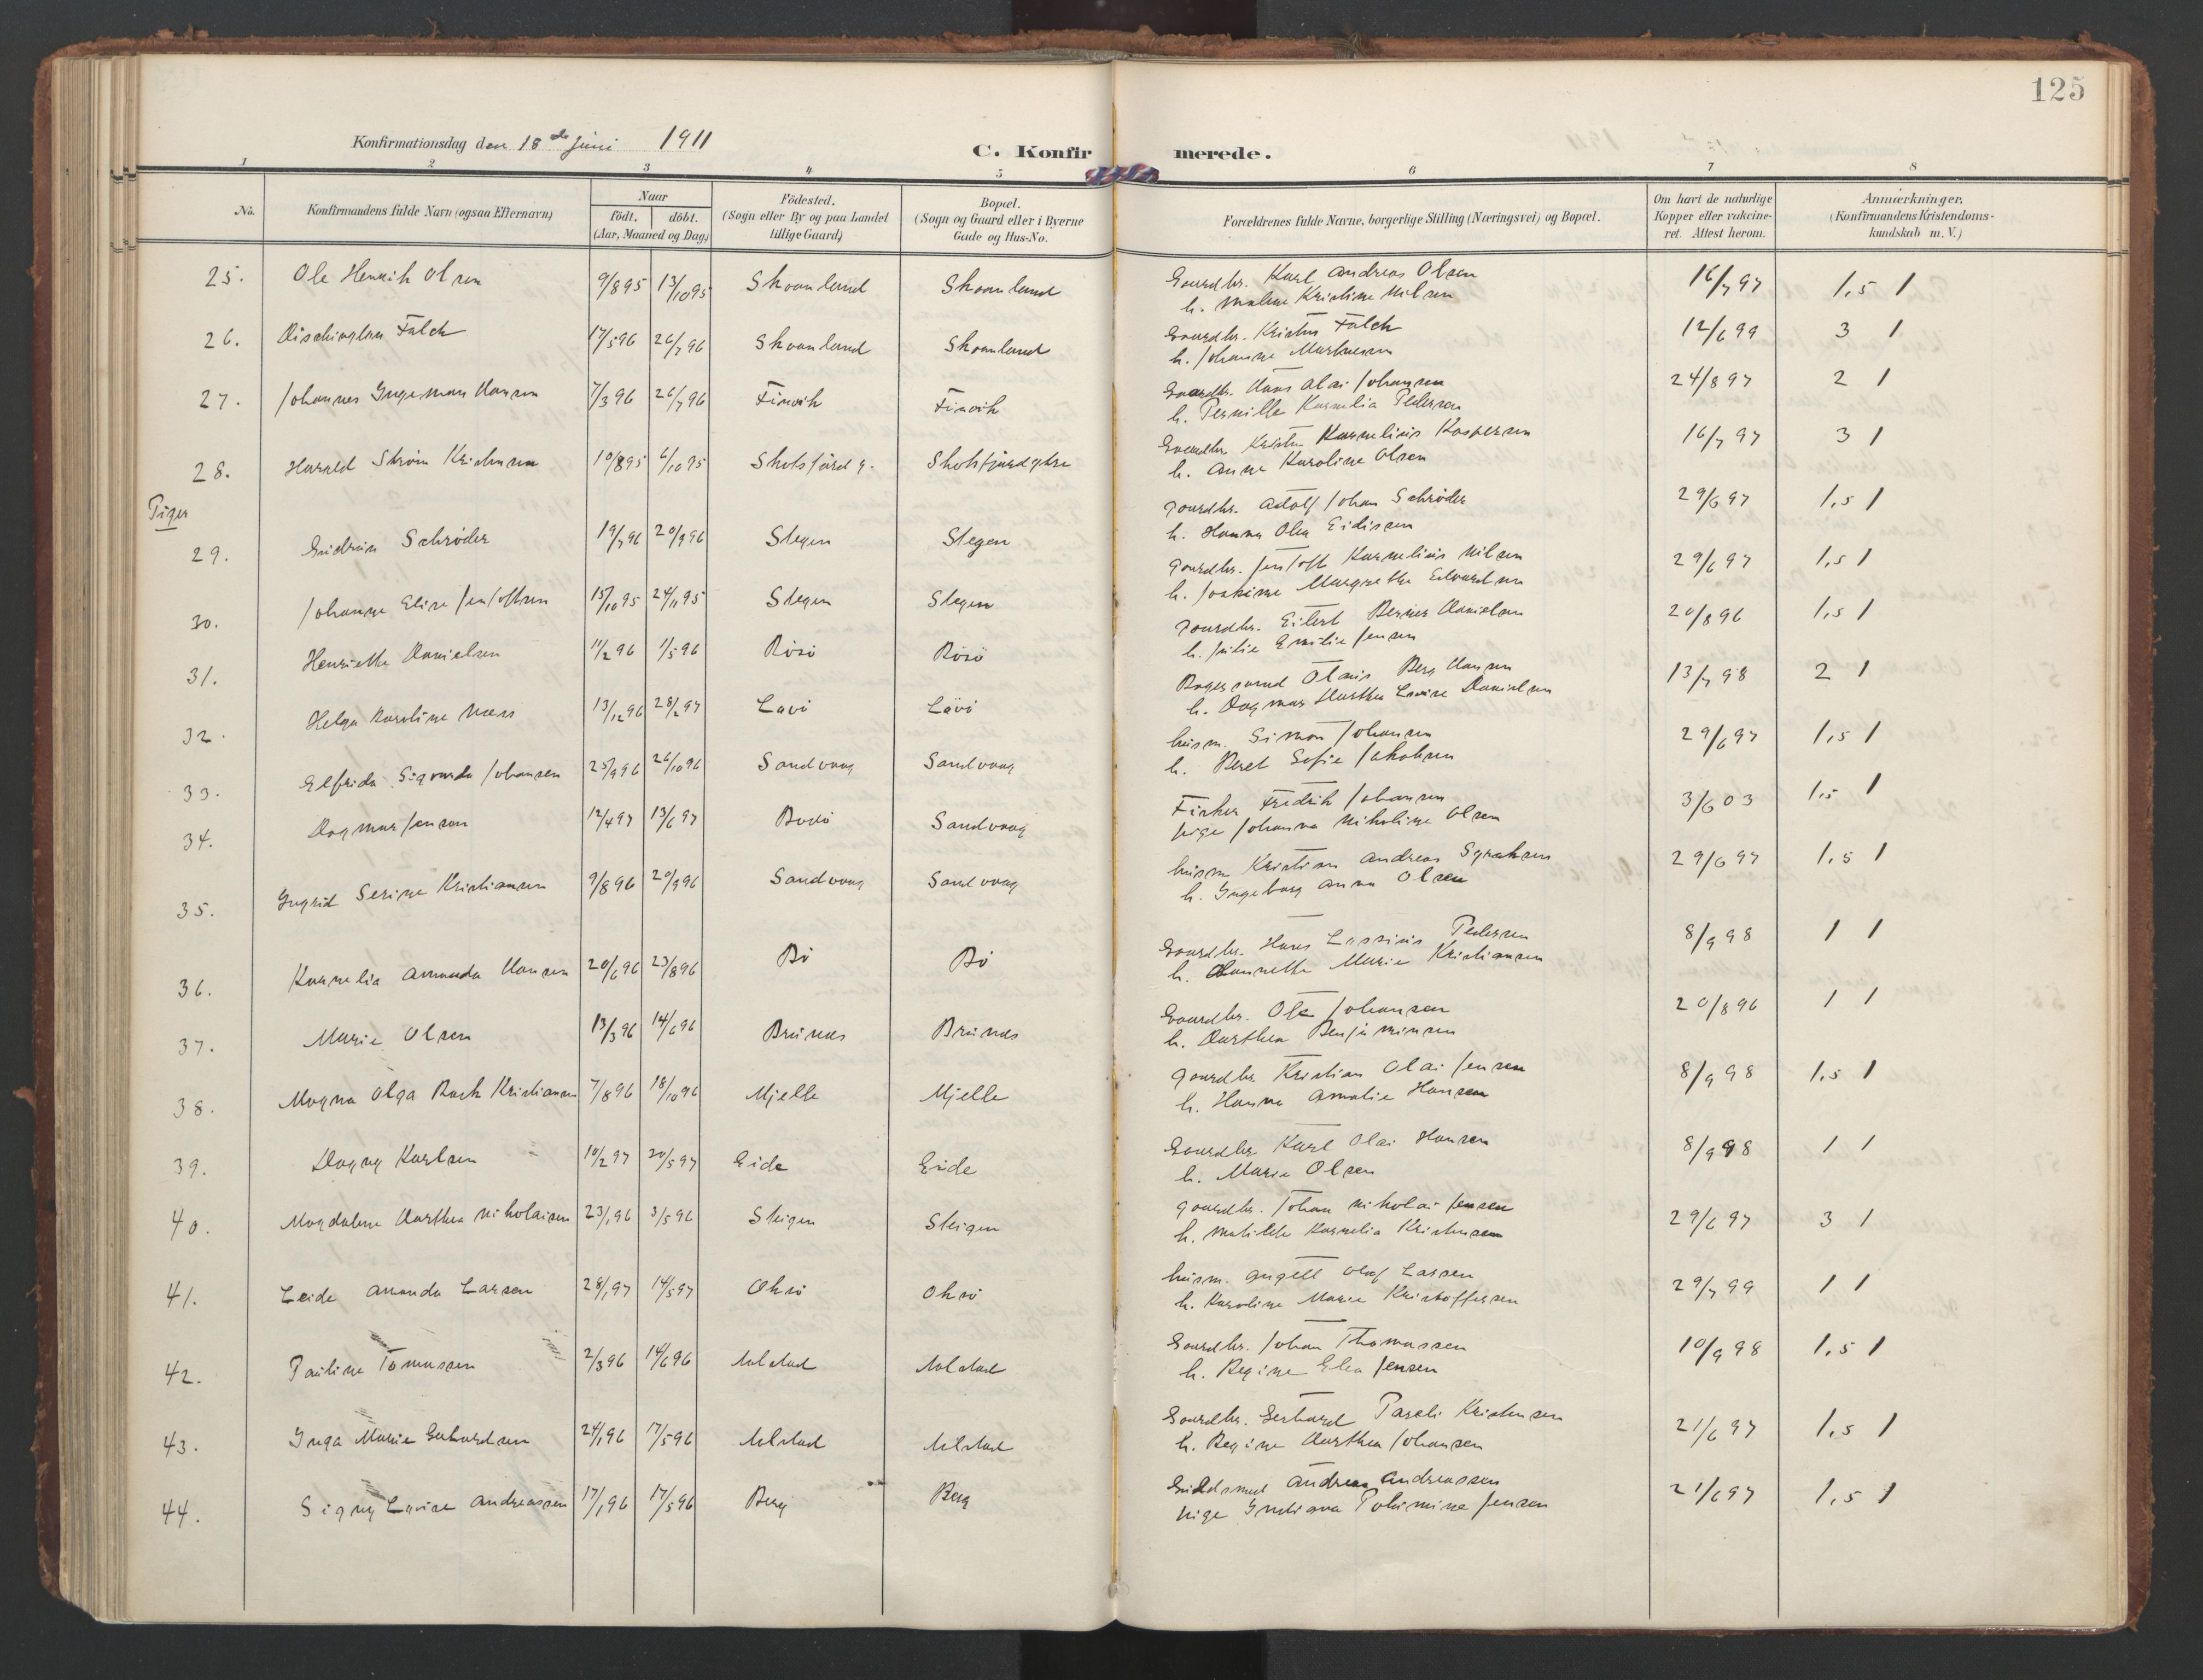 125
Konfirmationsdag den 18de Juni 1911
C. Konfirmerede.
1 2 3 4 5 6 7 8
No. Konfirmandens fulde Navn (ogsaa Efternavn) Naar födt. döbt. (Aar, Maaned og Dag) Födested. (Sogn eller By og paa Landet tillige Gaard) Bopæl. (Sogn og Gaard eller i Byerne Gade og Hus-No. Forældrenes fulde Navne, borgerlige Stilling (Næringsvei) og Bopæl. Om havt de naturlige Kopper eller vakcineret. Attest herom. Anmærkninger. (Konfirmandens Kristendomskundskab m. V.)
25. Ole Henrik Olsen 9/8 95 13/10 95 Skaanland Skaanland Gaardbr. Karl Andreas Olsen 16/7 97 1,5 1
h. Maline Kristine Nilsen
26. Falch 17/5 96 26/7 96 Skaanland Skaanland Gaardbr. Kristen Falch 12/6 99 3 1
h. Johanne Martinsen
27. Johannes Ingeman Hansen 7/3 96 26/7 96 Finvik Finvik Gaardbr. Hans Olai Johansen 24/8 97 2 1
h. Pernille Kornelia Pedersen
28. Harald Strøm Kristensen 10/8 95 6/10 95 Skotsfjord g. Skotsfjord Gaardbr. Kristen Kornelius Kaspersen 16/7 97 3 1
h. Anne Karoline Olsen
Piger
29. Gudrun Schrøder 19/7 96 20/9 96 Stegen Stegen Gaardbr. Adolf Johan Schröder 29/6 97 1,5 1
h. Hanna Olea Eidissen
30. Johanne Elise Jentoftsen 15/10 95 24/11 95 Stegen Stegen Gaardbr. Jentoft Kornelius Nilsen 29/6 97 1,5 1
h. Joakime Margrethe Edvardsen
31. Henriette Danielsen 11/2 96 1/5 96 Rösö Rösö Gaardbr. Eilert Berner Danielsen 20/8 96 1,5 1
h. Julie Emilie Jensen
32. Helga Karoline Næss 13/12 96 28/2 97 Lavö Lövö Olaus Berg Hansen 13/7 98 2 1
h. Dagmar Marthea Lovise Danielsen
33. Elfrida Sigvarda Johansen 25/9 96 26/10 96 Sandvaag Sandvaag husm. Simon Johansen 29/6 97 1,5 1
h. Beret Sofie Jakobsen
34. Dagmar Jensen 12/4 97 13/6 97 Bodö Sandvaag Fisker Fredrik Johansen 3/6 03 1,5 1
pige Johanna Nikoline Olsen
35. Ingrid Serine Kristiansen 9/8 96 20/9 96 Sandvaag Sandvaag husm Kristian Andreas 29/6 97 1,5 1
h. Ingeborg Anna Olsen
36. Kornelia Amanda Hansen 20/6 96 23/8 96 Bö Bö Gaardbr. Hans Lassius Pedersen 8/9 98 1 1
h. Marie Kristiansen
37. Marie Olsen 13/3 96 14/6 96 Brunæs Brunæs Gaardbr. Ole Johansen 20/8 96 1 1
h. Marthea Benjaminsen
38. Magna Olga Bark Kristiansen 7/8 96 18/10 96 Mjelle Mjelle Gaardbr Kristian Olai Jensen 8/9 98 1,5 1
h. Hanna Amalie Hansen
39. Dagny Karlsen 10/2 97 20/5 97 Eide Eide Gaardbr Karl Olai Hansen 8/9 98 1 1
h. Marie Olsen
40. Magdalene Marthea Nikolaisen 23/1 96 3/5 96 Steigen Steigen Gaardbr. Johan Nikolai Jensen 29/6 97 3 1
h. Matilde Kornelia Kristensen
41. Leide Amanda Larsen 28/1 97 14/5 97 Oksö Oksö husm. Angell Olaf Lassen 29/7 99 1 1
h. Karoline Marie Kristoffersen
42. Pauline Tomassen 2/3 96 14/6 96 Alstad Alstad Gaardbr. Johan Thomassen 10/9 98 1,5 1
h. Regine Elea Jensen
43. Inga Marie Gerhardsen 24/1 96 17/5 96 Alstad Alstad Gaardbr. Gerhard Pareli Kristensen 21/6 97 1,5 1
h. Regine Marthea Johansen
44. Signy Lovise Andreassen 17/1 96 17/5 96 Berg Berg Guldsmed Andreas Andreassen 21/6 97 1,5 1
pige Indiana Jensen